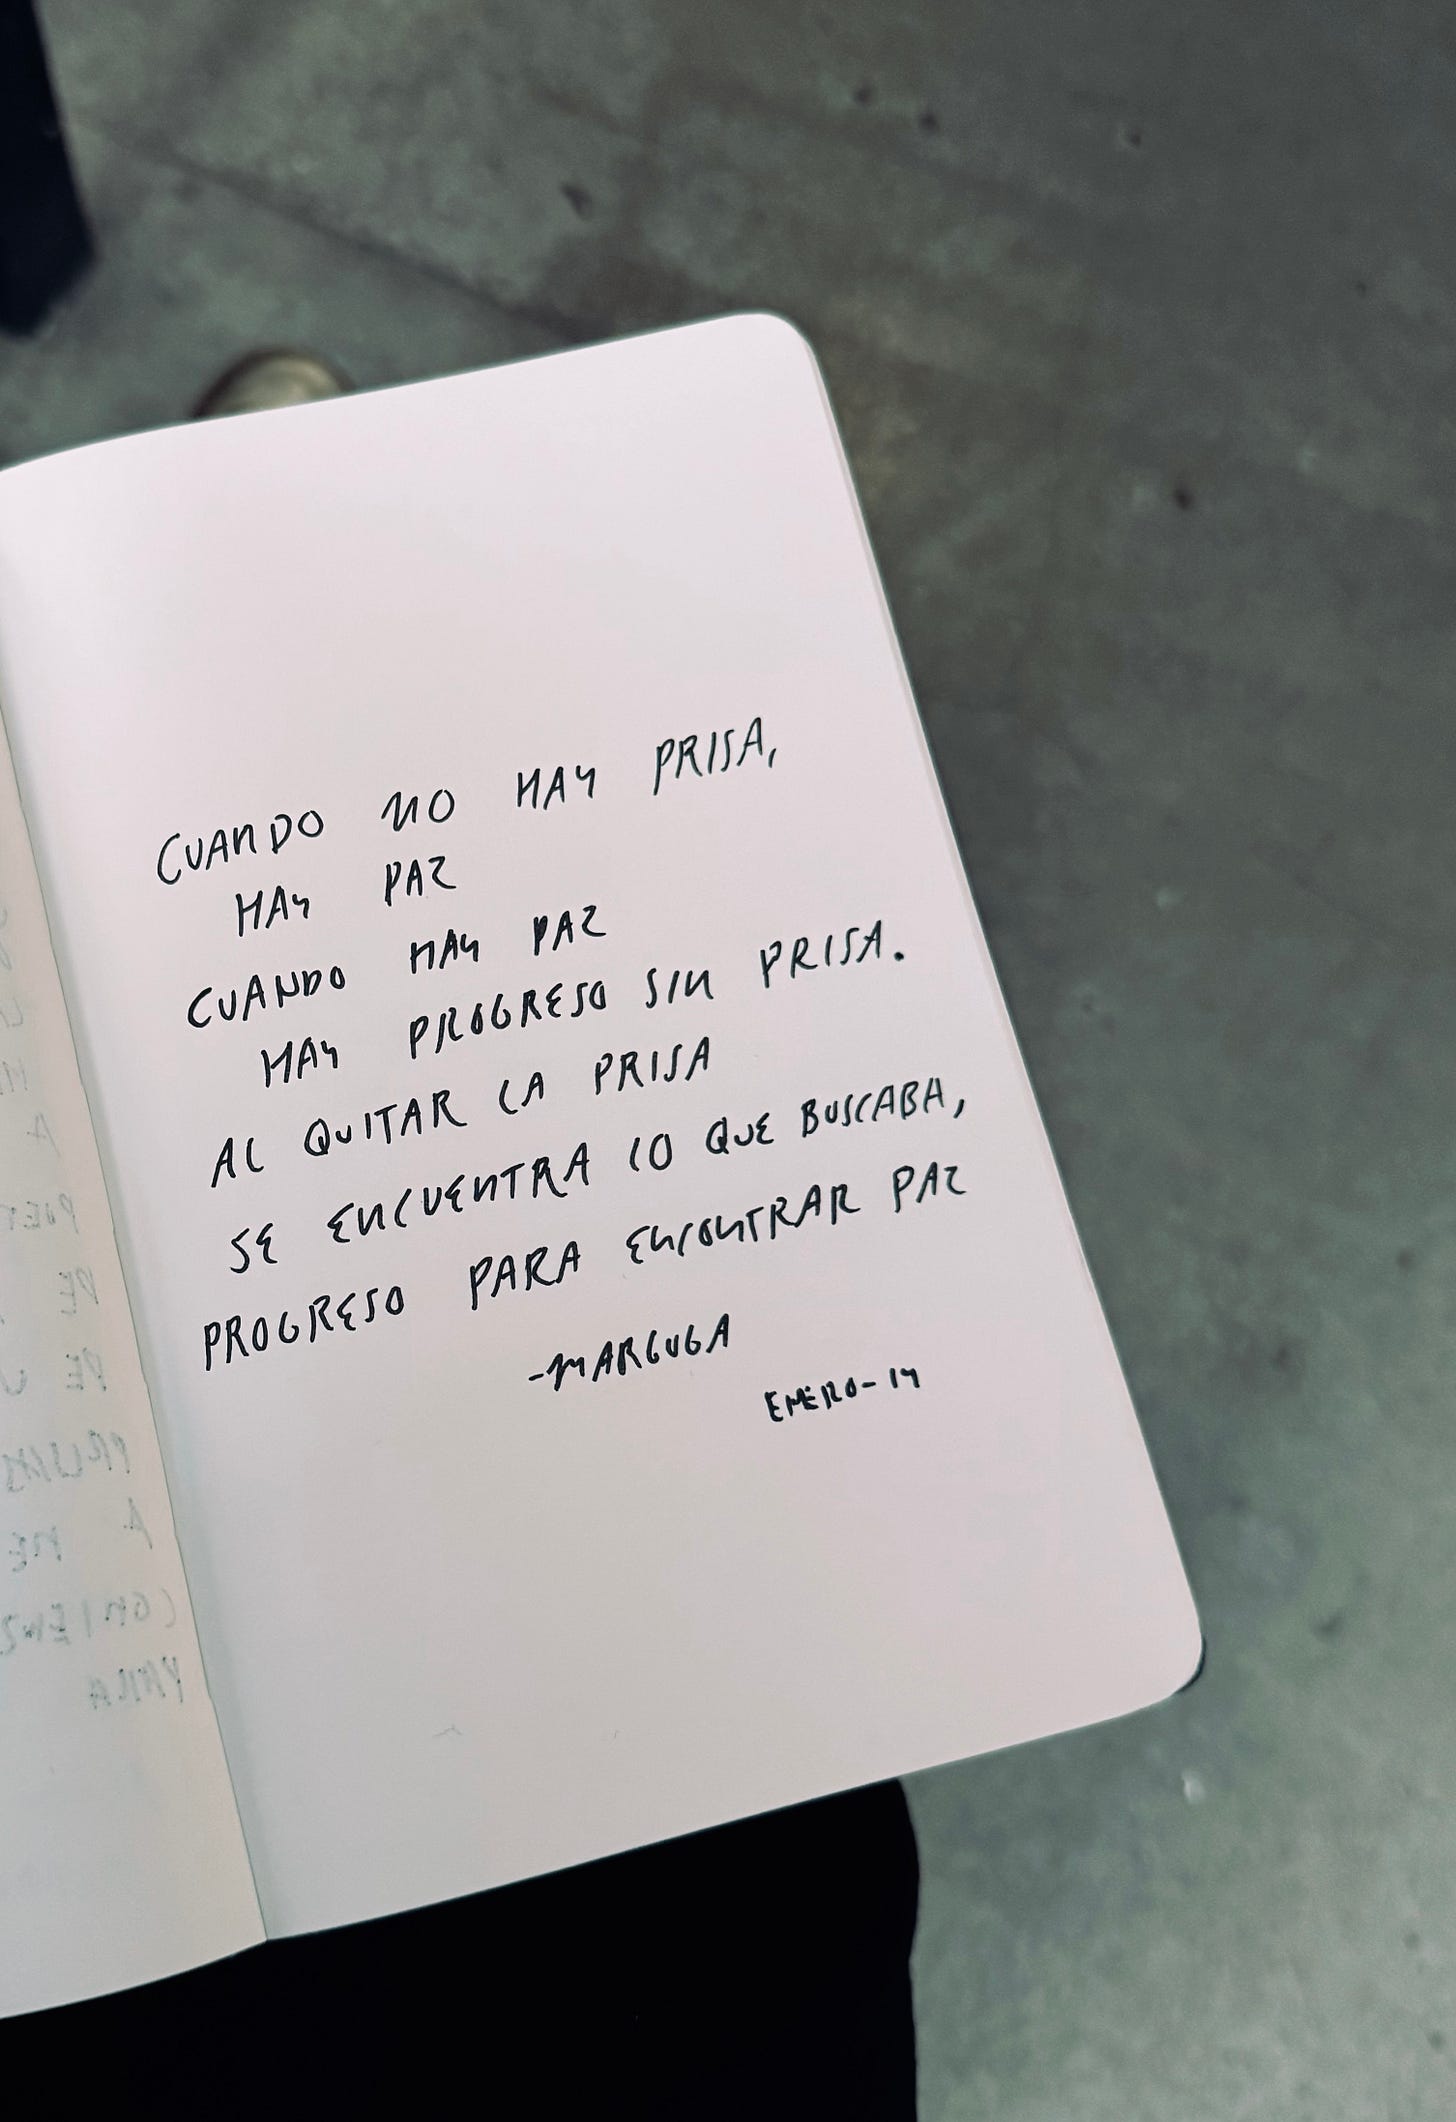 CUANDO NO HAY PRISA,
HAY PAZ
CUANDO HAY PAZ
HAY PROGRESO SIN PRISA.
AL QUITAR LA PRISA
SE ENCUENTRA LO QUE BUSCABA,
PROGRESO PARA ENCONTRAR PAZ
-MARGUGA
ENERO-14